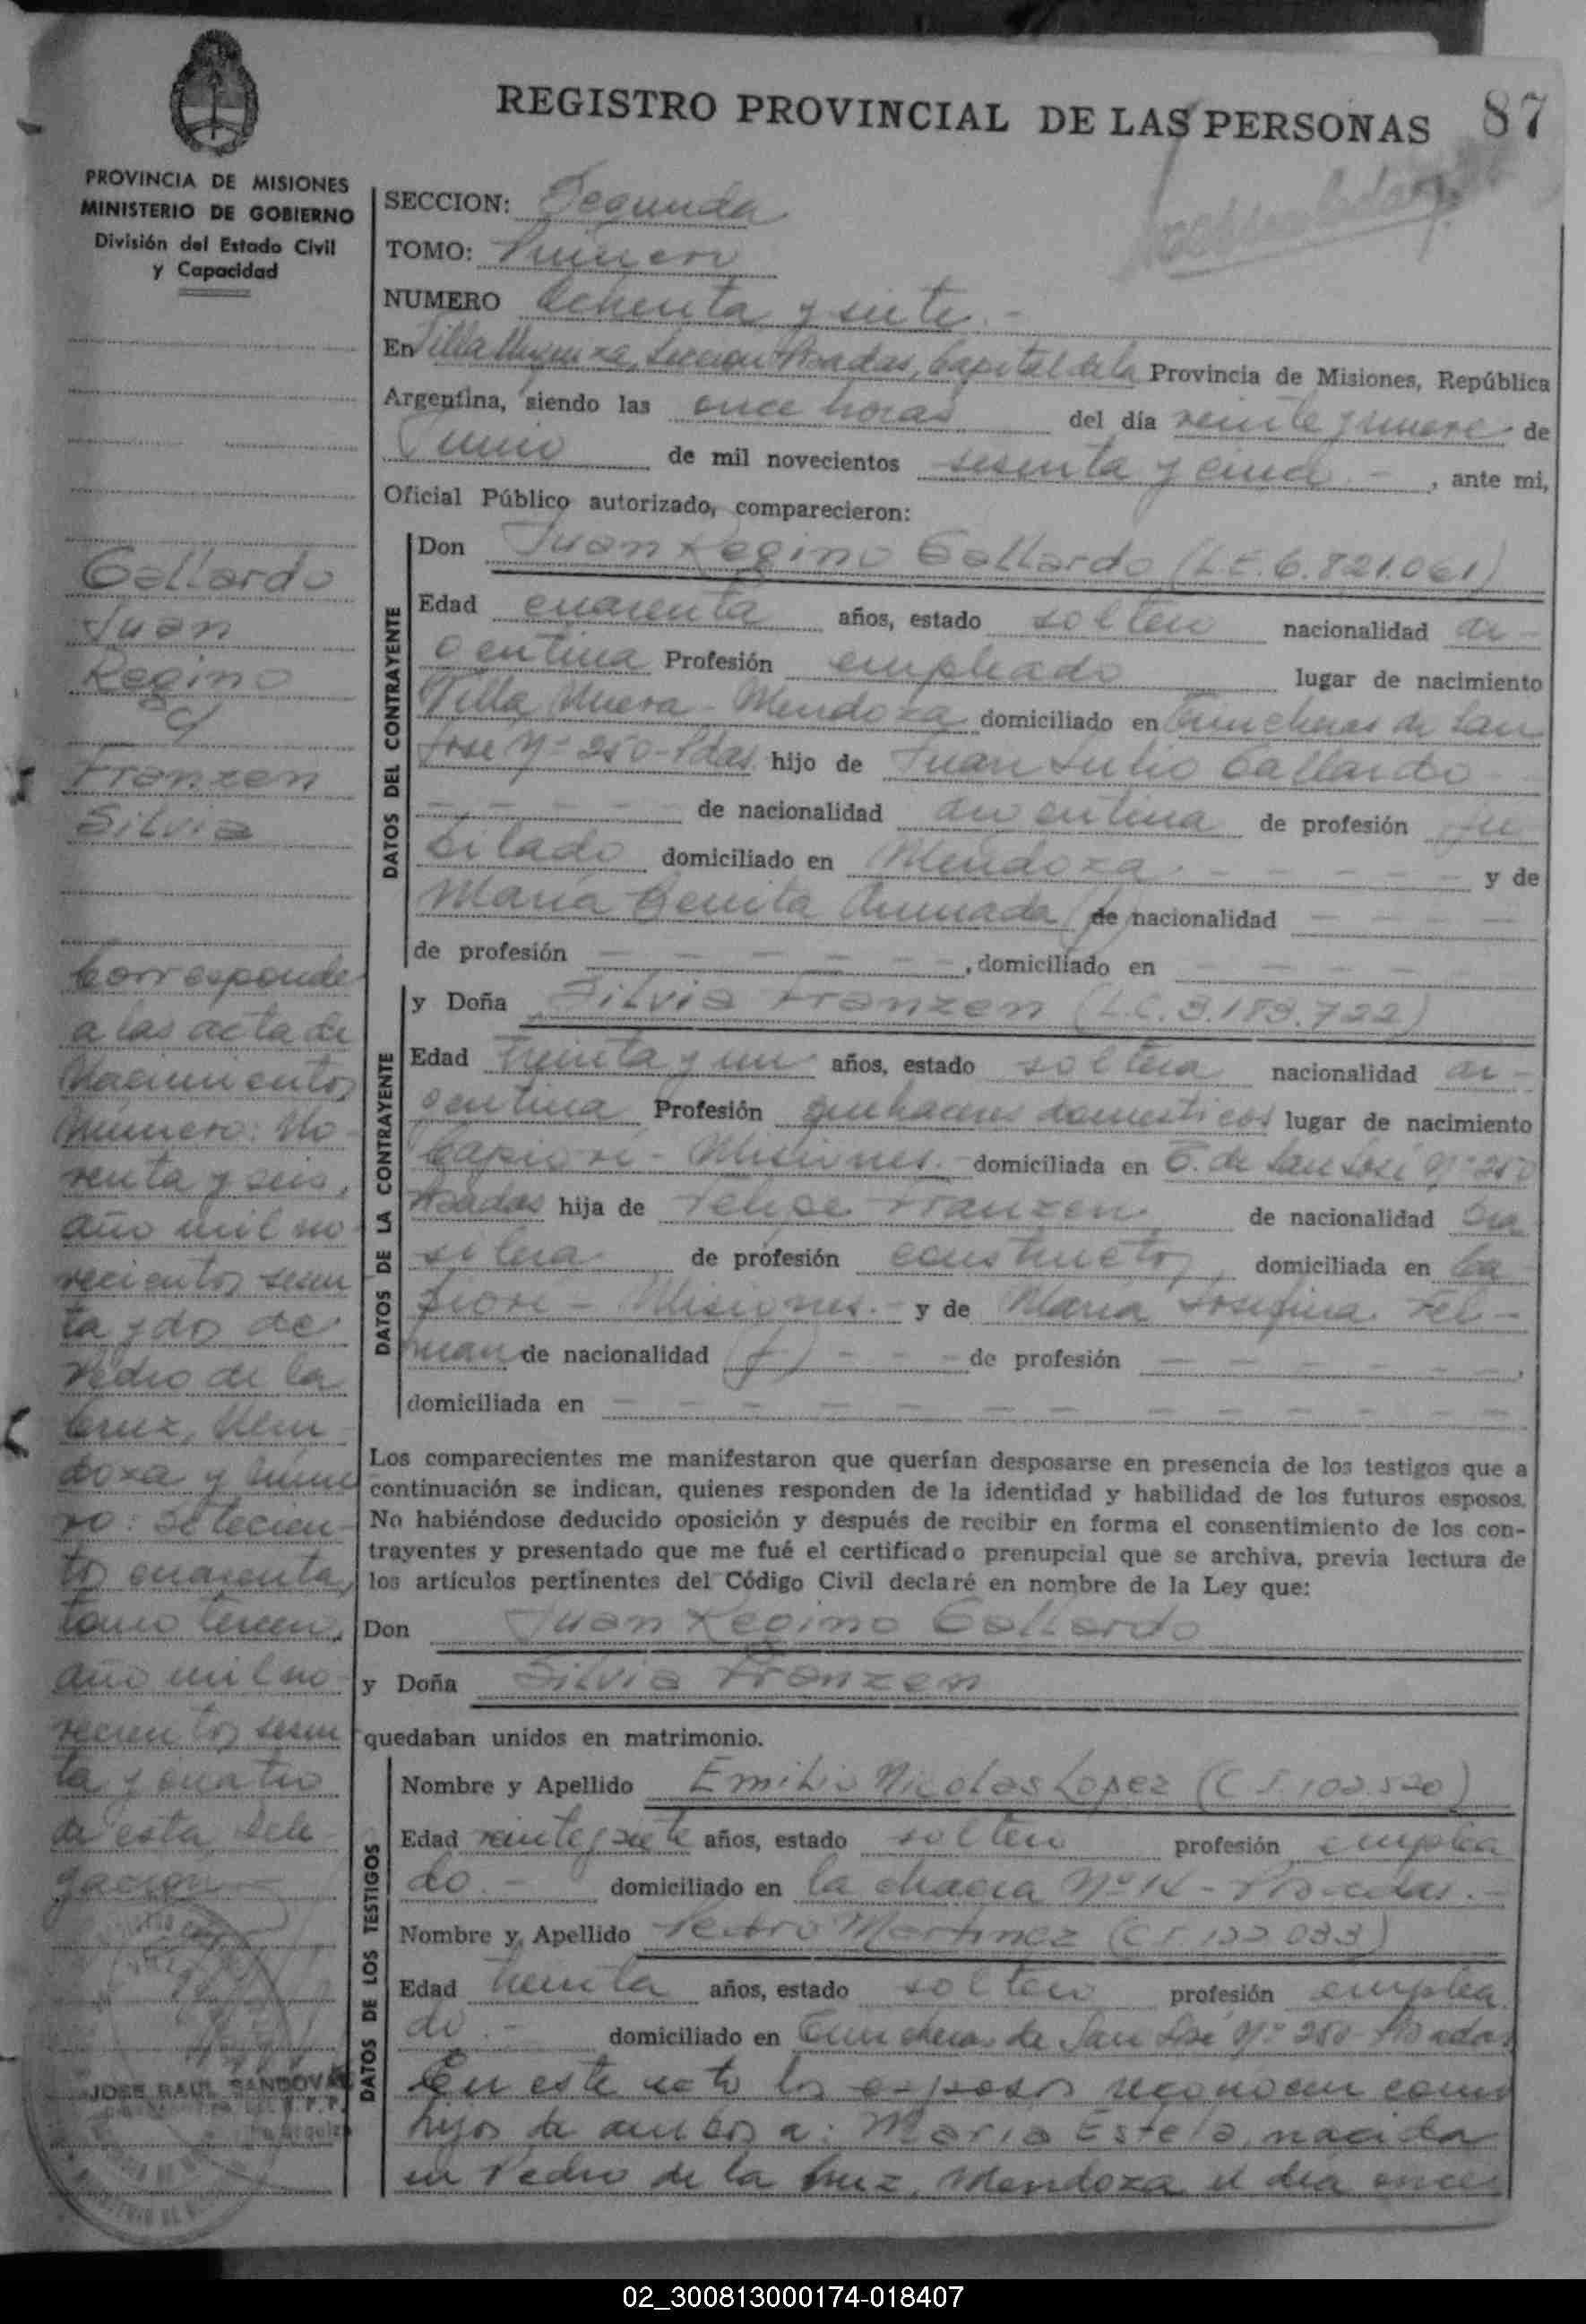 REGISTRO PROVINCIAL DE LAS PERSONAS 87
PROVINCIA DE MISIONES
MINISTERIO DE GOBIERNO
División del Estado Civil
y Capacidad
Gallardo
Juan
Regino
y
Franzen
Silvia
Corresponde
a las acta de
Nacimientos
Número: No
venta y seis,
año mil no
vecientos sesen
ta y dos de
Pedro de la
Cruz, Men
doza y núme
ro: setecien-
tos cuarenta,
tomo tercero,
año mil no
vecientos sesen
ta y cuatro
de esta Dele
gación.-
JOSE RAUL SANDOVAL
SECCION: Segunda
TOMO: Primero
NUMERO Ochenta y siete.-
En Villa Urquiza, Sección Posadas, Capital de la Provincia de Misiones, República
Argentina, siendo las once horas del día veinte y nueve de
Junio de mil novecientos sesenta y cinco.- , ante mi,
Oficial Público autorizado, comparecieron:
DATOS DEL CONTRAYENTE
Don Juan Regino Gallardo (L.E. 6.821.061)
Edad cuarenta años, estado soltero nacionalidad ar-
gentina Profesión empleado lugar de nacimiento
Villa Nueva - Mendoza domiciliado en Trincheras de San
Jose Nº 250-Pdas. hijo de Juan Julio Gallardo -
- - - - - de nacionalidad argentina de profesión ju
bilado domiciliado en Mendoza.- - - - - - y de
María Benita Ahumada (f) de nacionalidad - - - -
de profesión - - - - - - , domiciliado en - - - -
DATOS DE LA CONTRAYENTE
y Doña Silvia Franzen (L.C. 3.183.722)
Edad treinta y un años, estado soltera nacionalidad ar-
gentina Profesión quehaceres domesticos lugar de nacimiento
Capioví - Misiones.- domiciliada en T. de San José Nº 250
Posadas hija de Felipe Franzen de nacionalidad bra
silera de profesión constructor, domiciliada en Ca
piovi - Misiones.- y de María Josefina Fel-
man de nacionalidad (f) - - - - de profesión - - - - - - ,
domiciliada en - - - - - - - - - -
Los comparecientes me manifestaron que querían desposarse en presencia de los testigos que a
continuación se indican, quienes responden de la identidad y habilidad de los futuros esposos.
No habiéndose deducido oposición y después de recibir en forma el consentimiento de los con-
trayentes y presentado que me fué el certificado prenupcial que se archiva, previa lectura de
los artículos pertinentes del Código Civil declaré en nombre de la Ley que:
Don Juan Regino Gallardo
y Doña Silvia Franzen
quedaban unidos en matrimonio.
DATOS DE LOS TESTIGOS
Nombre y Apellido Emilio Nicolas Lopez (C.I. 102.520)
Edad veinte y siete años, estado soltero profesión emplea
do.- domiciliado en la chacra Nº 14 - Posadas.-
Nombre y Apellido Pedro Martinez (C.I. 122.033)
Edad treinta años, estado soltero profesión emplea
do.- domiciliado en Trincheras de San José Nº 250 Posadas
En este acto los esposos reconocen como
hijos de ambos a: Maria Estela, nacida
en Pedro de la Cruz, Mendoza el día once
02_300813000174-018407